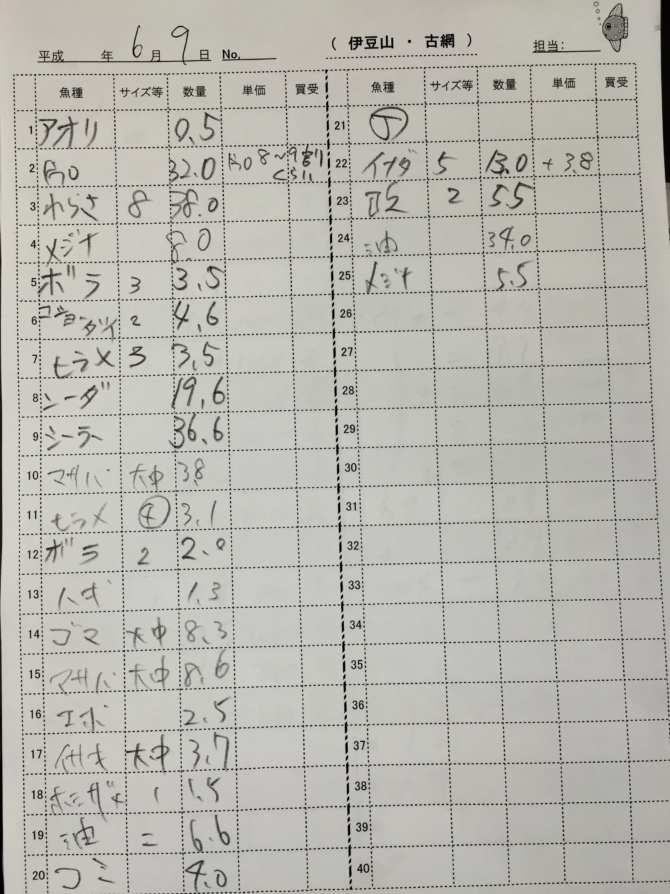 平成 年 6 月 9 日 No.
( 伊豆山 ・ 古網 )
担当:
魚種 サイズ等 数量 単価 買受
1 アオリ 0.5
2 32.0 8~9割り くらい
3 わらさ 8 38.0
4 メジナ 8.0
5 ボラ 3 3.5
6 コショーダイ 2 4.6
7 ヒラメ 3 3.5
8 シーダ 19.6
9 シーラー 36.6
10 マサバ 大中 38
11 ヒラメ ④ 3.1
12 ボラ 2 2.0
13 ハギ 1.3
14 ゴマ 大中 8.3
15 マサバ 大中 8.6
16 エボ 2.5
17 イサキ 大中 3.7
18 1 1.5
19 油 = 6.6
20 コミ 4.0
魚種 サイズ等 数量 単価 買受
21
22 イナダ 5 13.0 +3.8
23 2 5.5
24 油 34.0
25 メジナ 5.5
26
27
28
29
30
31
32
33
34
35
36
37
38
39
40